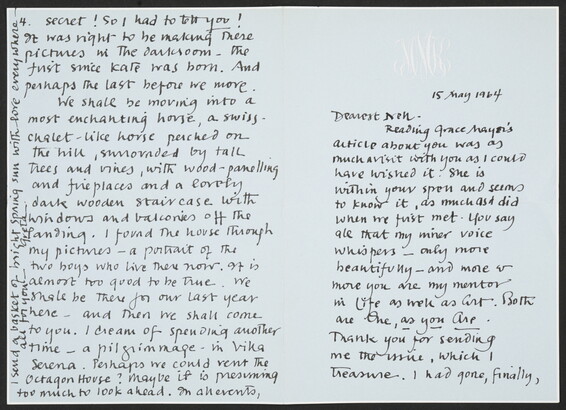 4. secret! So I had to tell you!
It was right to be making these
pictures in the darkroom - the
first since Kate was born. And
perhaps the last before we move.
We shall be moving into a
most enchanting house, a swiss-
chalet-like house perched on
the hill, surrounded by tall
trees and vines, with wood-panelling
and fireplaces and a lovely
dark wooden staircase with
windows and balconies off the
landing. I found the house through
my pictures - a portrait of the
two boys who live there now. It is
almost too good to be true. We
shall be there for our last year
here - and then we shall come
to you. I dream of spending another
time - a pilgrimmage - in Vika
Serena. Perhaps we could rent the
Octagon House? Maybe it is presuming
too much to look ahead. In all events,
I send a basket of bright spring sun with love everywhere -
all for you - Greta
15 May 1964
Dearest Neh.
Reading Grace Mayer's
article about you was as
much a visit with you as I could
have wished it. She is
within your span and seems
to know it, as much as I did
when we first met. You say
all that my inner voice
whispers - only more
beautifully - and more &
more you are my mentor
in Life as well as Art. Both
are One, as you Are.
Thank you for sending
me the issue, which I
treasure. I had gone, finally,